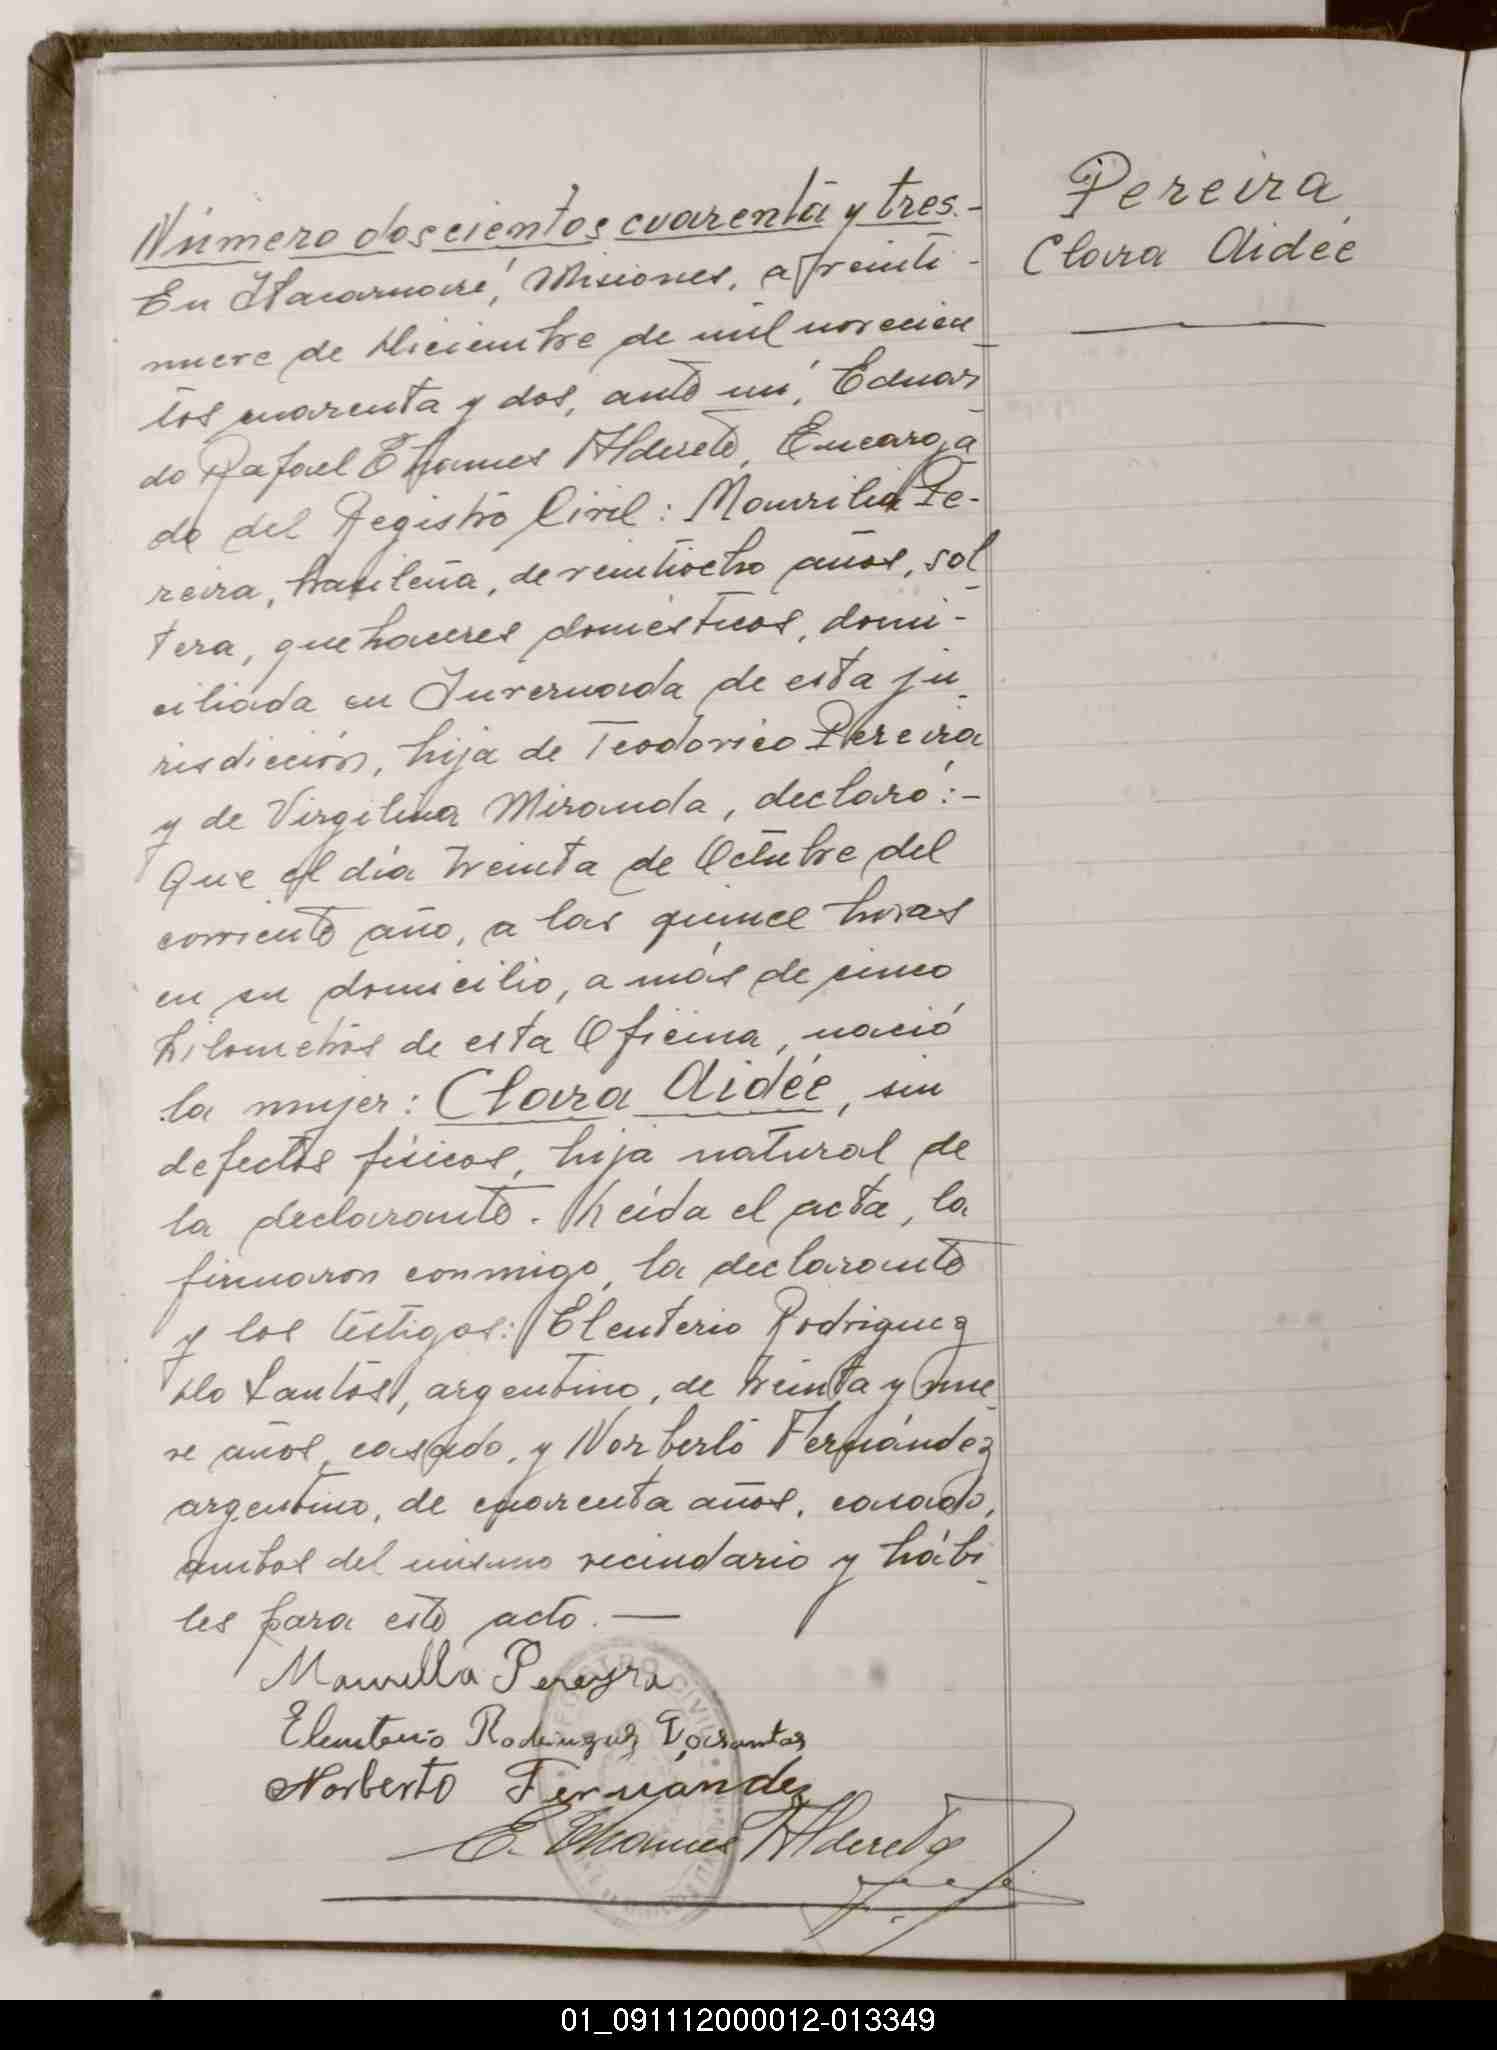 Pereira
Clara Aidée
Número doscientos cuarenta y tres.-
En Itacaruaré, Misiones, a veinti-
nueve de Diciembre de mil novecien-
tos cuarenta y dos, ante mí, Eduar-
do Rafael Thames Alderete, Encarga-
do del Registro Civil: Maurilia Pe-
reira, brasileña, de veintiocho años, sol-
tera, quehaceres domésticos, domi-
ciliada en Invernada de esta ju-
risdicción, hija de Teodorico Pereira
y de Virgilina Miranda, declaró:-
Que el día treinta de Octubre del
corriente año, a las quince horas
en su domicilio, a más de cinco
kilometros de esta Oficina, nació
la mujer: Clara Aidée, sin
defectos físicos, hija natural de
la declarante. Leída el acta, la
firmaron conmigo, la declarante
y los testigos: Eleuterio Rodriguez
Do Santos, argentino, de treinta y nue-
ve años, casado, y Norberto Fernández
argentino, de cuarenta años, casado,
ambos del mismo vecindario y hábi-
les para este acto. —
Pereyra
Eleuterio Rodriguez Dosantos
Norberto Fernández
E. Thames Alderete
REGISTRO CIVIL
01_091112000012-013349